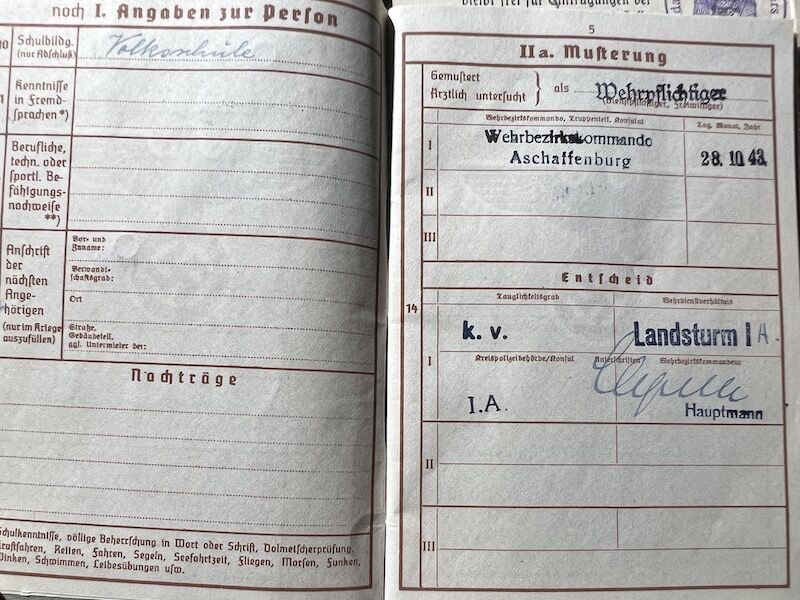 noch I. Angaben zur Person
Schulbildg.
(nur Abschluß)
Volksschule
Kenntnisse
in Fremd-
sprachen*)
Berufliche,
techn. oder
sportl. Be-
fähigungs-
nachweise
**)
Anschrift
der
nächsten
Ange-
hörigen
(nur im Kriege
auszufüllen)
Vor- und
Zuname:
Verwandt-
schaftsgrad:
Ort
Straße,
Gebäudeteil,
ggf. Untermieter bei:
Nachträge
Schulkenntnisse, völlige Beherrschung in Wort oder Schrift, Dolmetscherprüfung.
Kraftfahren, Reiten, Fahren, Segeln, Seefahrtzeit, Fliegen, Morsen, Funken,
Winken, Schwimmen, Leibesübungen usw.
bleibt frei für Eintragungen der
5
IIa. Musterung
Gemustert
Ärztlich untersucht } als Wehrpflichtiger
(Dienstpflichtiger, Freiwilliger)
Wehrbezirkskommando, Truppenteil, Konsulat
Tag, Monat, Jahr
I
Wehrbezirkskommando
Aschaffenburg
28. 10. 43.
II
III
Entscheid
14
Tauglichkeitsgrad
Wehrdienstverhältnis
k. v.
Landsturm I A.
I
Kreispolizeibehörde/Konsul
Unterschriften
Wehrbezirkskommandeur
I.A.
Hauptmann
II
III